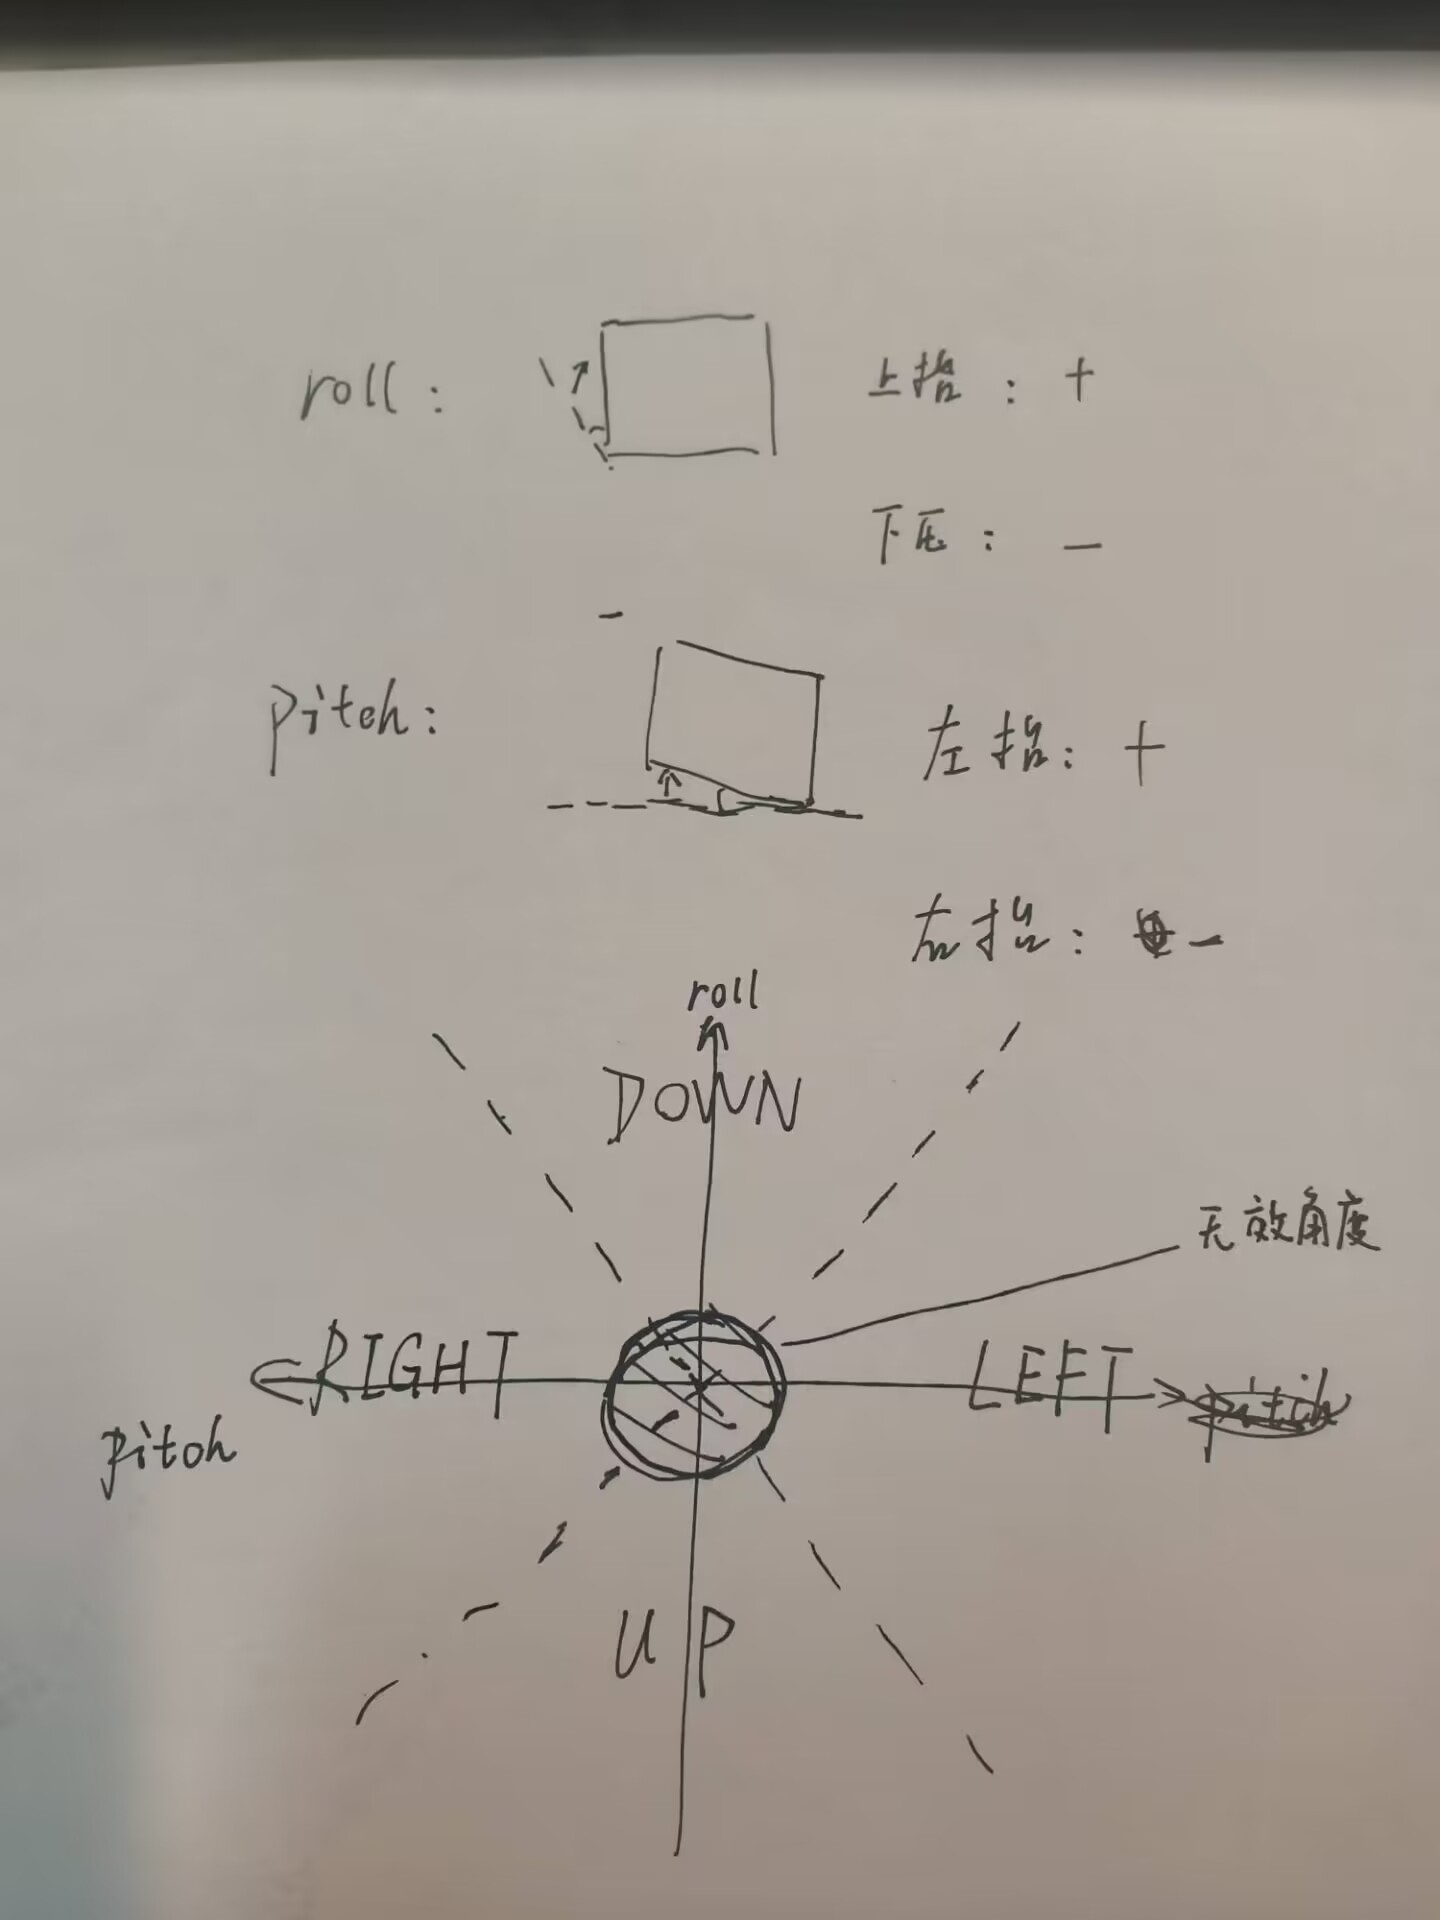 roll: 上抬: +
下压: -
-
pitch: 左抬: +
右抬: -
roll
DOWN
无效角度
RIGHT LEFT pitch
pitch
UP